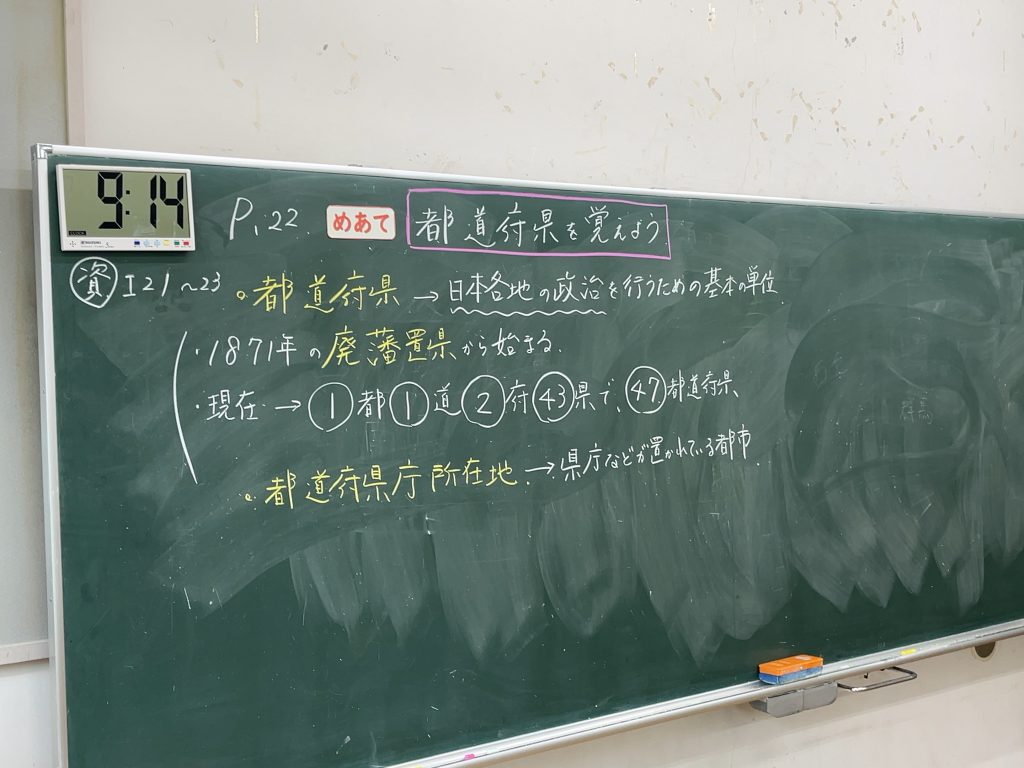 9:14
P.22 めあて 都道府県を覚えよう
資 I21~23
。都道府県→日本各地の政治を行うための基本の単位
・1871年の廃藩置県から始まる.
・現在→①都①道②府㊸県で、㊼都道府県、
。都道府県庁所在地→県庁などが置かれている都市